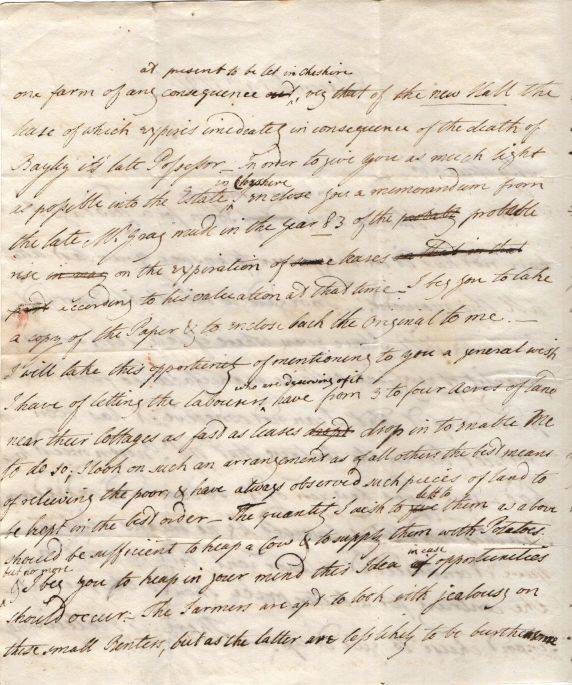 at present to be let in cheshire
one farm of any consequence and, viz that of the new Hall the
lease of which expires imediately in consequence of the death of
Bayley its late Possessor – In order to give you as much light
in Cheshire
as possible into the Estate, I enclose you a memorandum from
the late Mr Gray made in the year 83 of the probably probable
rise in way on the expiration of some leases a that in that
according to his valuation at that time – I beg you to take
a copy of the Paper & to enclose back the Original to me. –
I will take this opportunity of mentioning to you a general wish
who are deserving of it
I have of letting the labourers, have from 3 to four Acres of land
near their Cottages as fast as leases dropt drop in to enable me
to do so; I look on such an arrangement as of all others the best means
of relieving the poor, & have always observed such pieces of land to
be kept in the best order – The quantity I wish to give them as above
let to
should be sufficient to keep a Cow & to supply them with Potatoes.
but no more
in case
& I beg you to keep in your mind this Idea of opportunities
should occur. – The Farmers are apt to look with jealousy on
these small Renters, but as the latter are less likely to be burthensome